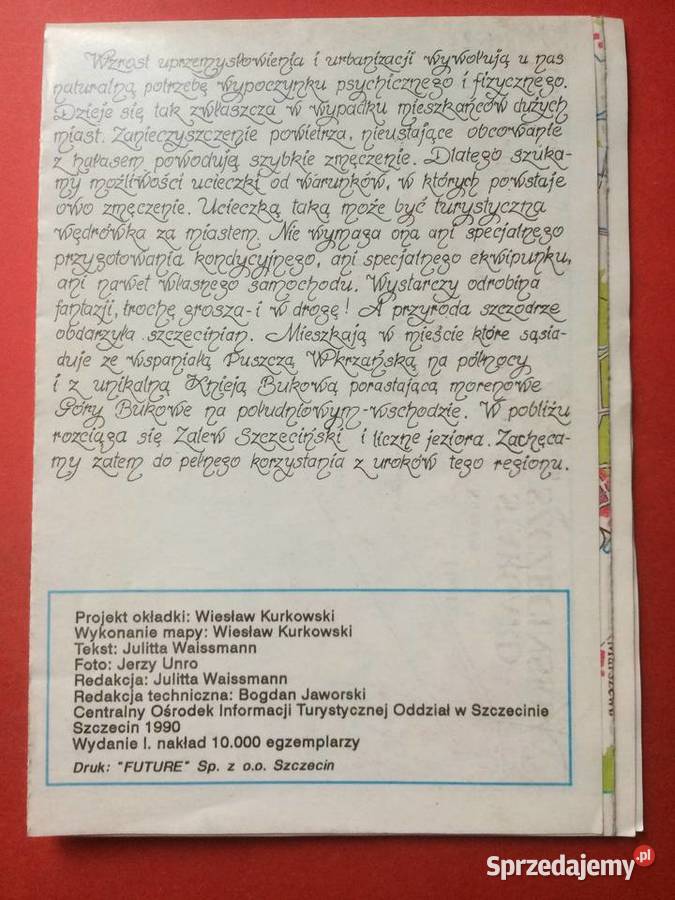 Wzrost uprzemysłowienia i urbanizacji wywołują u nas
naturalną potrzebę wypoczynku psychicznego i fizycznego.
Dzieje się tak zwłaszcza w wypadku mieszkańców dużych
miast. Zanieczyszczenie powietrza, nieustające obcowanie
z hałasem powodują szybkie zmęczenie. Dlatego szuka-
my możliwości ucieczki od warunków, w których powstaje
owo zmęczenie. Ucieczką taką może być turystyczna
wędrówka za miastem. Nie wymaga ona ani specjalnego
przygotowania kondycyjnego, ani specjalnego ekwipunku,
ani nawet własnego samochodu. Wystarczy odrobina
fantazji, trochę grosza - i w drogę! A przyroda szczodrze
obdarzyła szczecinian. Mieszkają w mieście które sąsia-
duje ze wspaniałą Puszczą Wkrzańską na północy
i z unikalną Knieją Bukową porastającą morenowe
Góry Bukowe na południowym-wschodzie. W pobliżu
rozciąga się Zalew Szczeciński i liczne jeziora. Zachęca-
my zatem do pełnego korzystania z uroków tego regionu.
Projekt okładki: Wiesław Kurkowski
Wykonanie mapy: Wiesław Kurkowski
Tekst: Julitta Waissmann
Foto: Jerzy Unro
Redakcja: Julitta Waissmann
Redakcja techniczna: Bogdan Jaworski
Centralny Ośrodek Informacji Turystycznej Oddział w Szczecinie
Szczecin 1990
Wydanie I. nakład 10.000 egzemplarzy
Druk: "FUTURE" Sp. z o.o. Szczecin
Sprzedajemy.pl